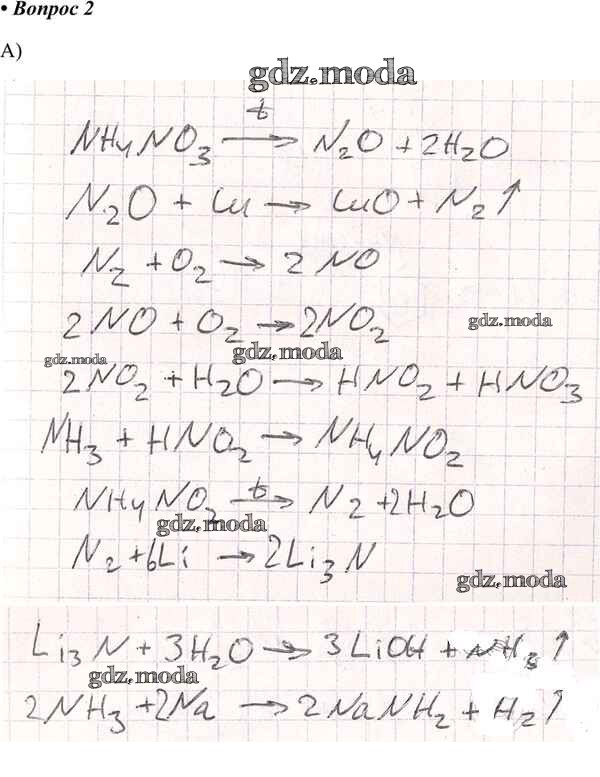 • Вопрос 2
А)
gdz.moda
NH₄NO₃ —t→ N₂O + 2H₂O
N₂O + Cu → CuO + N₂↑
N₂ + O₂ → 2NO
2NO + O₂ → 2NO₂
gdz.moda
gdz.moda
gdz.moda
2NO₂ + H₂O → HNO₂ + HNO₃
NH₃ + HNO₂ → NH₄NO₂
NH₄NO₂ —t→ N₂ + 2H₂O
gdz.moda
N₂ + 6Li → 2Li₃N
gdz.moda
Li₃N + 3H₂O → 3LiOH + NH₃↑
gdz.moda
2NH₃ + 2Na → 2NaNH₂ + H₂↑